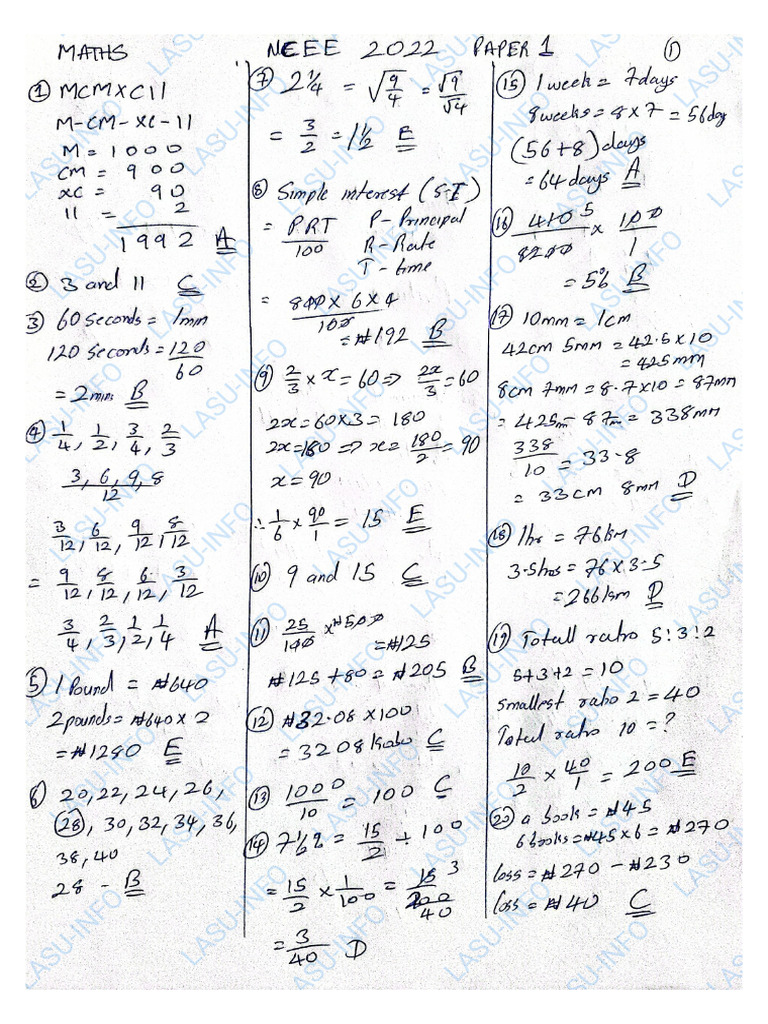 MATHS NCEE 2022 PAPER 1 ①
① MCMXCII
M-CM-XC-II
M = 1000
CM = 900
XC = 90
II = 2
1992 A
② 3 and 11 C
③ 60 seconds = 1min
120 seconds = 120/60
= 2mins B
④ 1/4, 1/2, 3/4, 2/3
3, 6, 9, 8/12
3/12, 6/12, 9/12, 8/12
= 9/12, 8/12, 6/12, 3/12
3/4, 2/3, 1/2, 1/4 A
⑤ 1 Pound = ₦640
2 pounds = ₦640 x 2
= ₦1280 E
⑥ 20, 22, 24, 26,
(28), 30, 32, 34, 36,
38, 40
28 - B
⑦ 2 1/4 = √9/4 = √9/√4
= 3/2 = 1 1/2 E
⑧ Simple interest (S.I)
= PRT/100 P - Principal
R - Rate
T - time
= 800 x 6 x 4/100
= ₦192 B
⑨ 2/3 x x = 60 => 2x/3 = 60
2x = 60 x 3 = 180
2x = 180 => x = 180/2 = 90
x = 90
∴ 1/6 x 90/1 = 15 E
⑩ 9 and 15 C
⑪ 25/100 x ₦500
= ₦125
₦125 + 80 = ₦205 B
⑫ ₦32.08 x 100
= 3208 kobo C
⑬ 1000/10 = 100 C
⑭ 7 1/2 % = 15/2 ÷ 100
= 15/2 x 1/100 = 15 3/200 40
= 3/40 D
⑮ 1 week = 7 days
8 weeks = 8 x 7 = 56 day
(56 + 8) days
= 64 days A
⑯ 410 5/8200 x 100/1
= 5% B
⑰ 10mm = 1cm
42cm 5mm = 42.5 x 10
= 425mm
8cm 7mm = 8.7 x 10 = 87mm
= 425m - 87m = 338mm
338/10 = 33.8
= 33cm 8mm D
⑱ 1hr = 76km
3.5hrs = 76 x 3.5
= 266km D
⑲ Totall ratio 5:3:2
5+3+2 = 10
Smallest ratio 2 = 40
Total ratio 10 = ?
10/2 x 40/1 = 200 E
⑳ a book = ₦45
6 books = ₦45 x 6 = ₦270
loss = ₦270 - ₦230
loss = ₦40 C
LASU-INFO